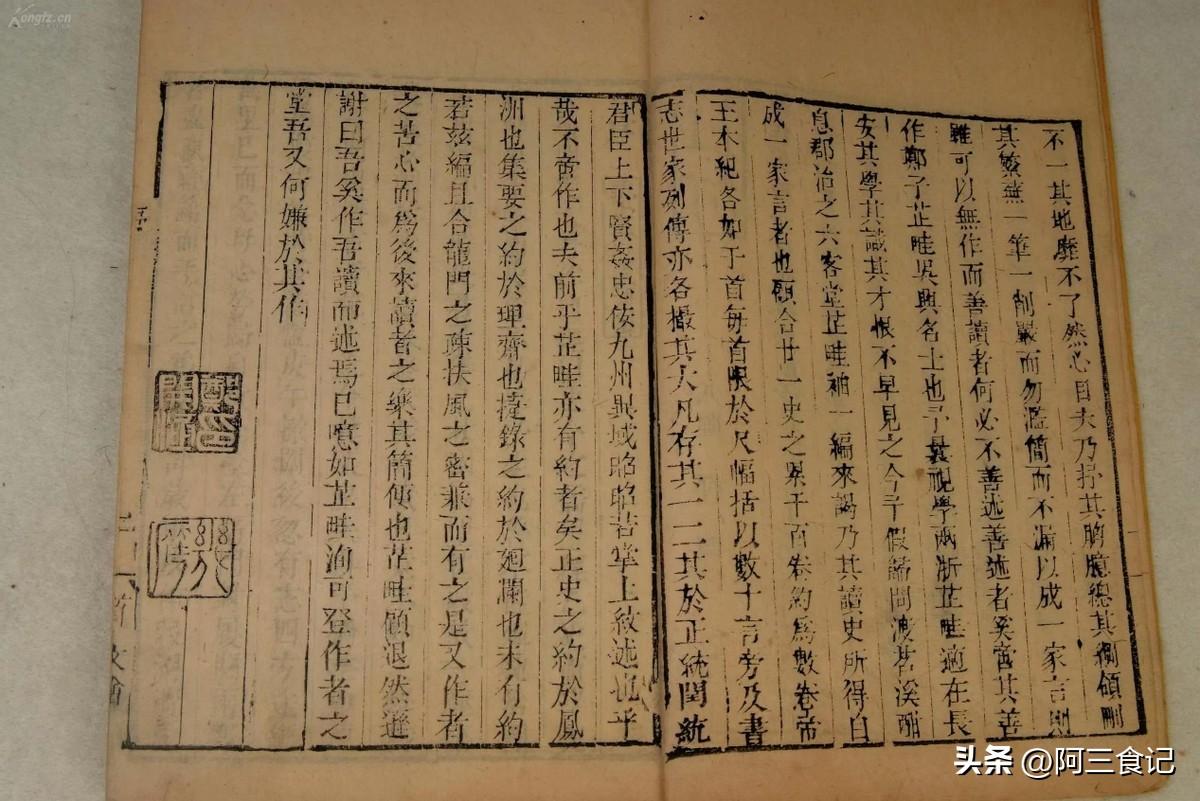 不一其地靡不了然心目夫乃抒其胸臆總其綱領刪
其繁蕪一筆一削嚴而勿濫簡而不漏以成一家言則
雖可以無作而善讀者何必不善述善述者奚啻其善
作鄭子芷畦吳興名士也予曩視學兩浙芷畦適在長
安其學其識其才恨不早見之今予假請問渡苕溪
息郡治之六客堂芷畦袖一編來謁乃其讀史所得自
成一家言者也顧合廿一史之累千百卷約為數卷帝
王本紀各如干首每首限於尺幅括以數十言旁及書
志世家列傳亦各撮其大凡存其一二其於正統閏統
君臣上下賢姦忠佞九州異域昭昭若掌上紋述也乎
哉不啻作也夫前乎芷畦亦有約者矣正史之約於鳳
洲也集要之約於理齋也捷錄之約於廻瀾也未有約
若茲編且合龍門之疎扶風之密兼而有之是又作者
之苦心而為後來讀者之樂其簡便也芷畦顧退然遜
謝曰吾奚作吾讀而述焉已噫如芷畦洵可登作者之
堂吾又何嫌於其作
Kongfz.cn
头条 @阿三食记